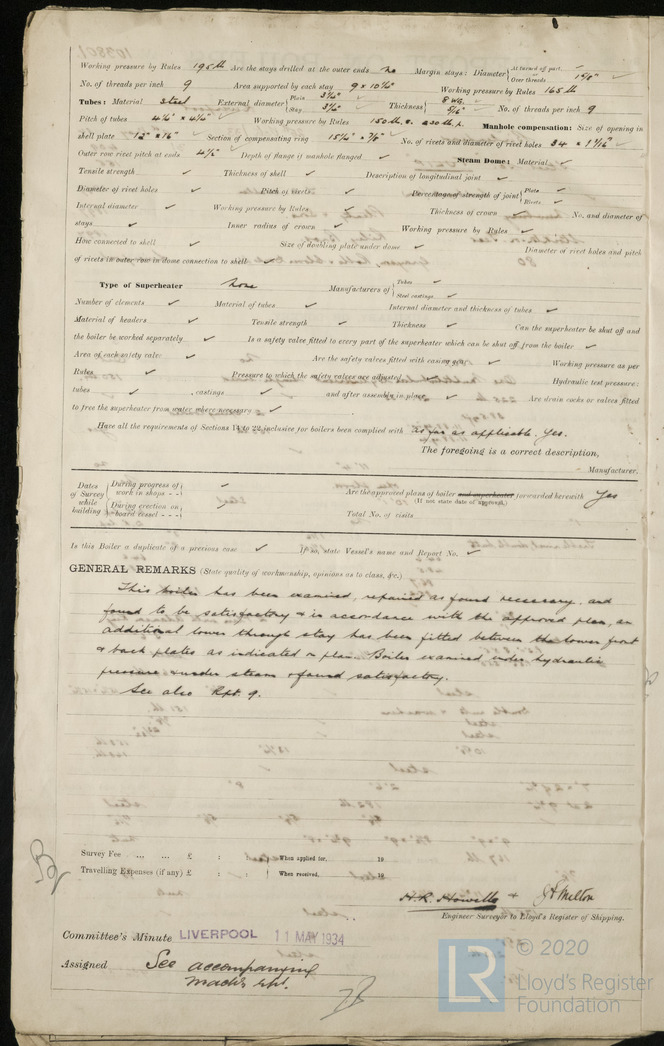 Working pressure by Rules 195 lb Are the stays drilled at the outer ends no Margin stays: Diameter { At turned off part, Over threads 1 5/8"
No. of threads per inch 9 Area supported by each stay 9 x 10 1/4" Working pressure by Rules 165 lb
Tubes: Material steel External diameter { Plain 3 1/4" Stay 3 1/4" Thickness { 8 WG. 5/16" No. of threads per inch 9
Pitch of tubes 4 1/2" x 4 1/2" Working pressure by Rules Manhole compensation: Size of opening in
shell plate 12" x 16" Section of compensating ring No. of rivets and diameter of rivet holes 34 x 1 1/16"
Outer row rivet pitch at ends 4 1/2" Depth of flange if manhole flanged Steam Dome: Material
Tensile strength Thickness of shell Description of longitudinal joint
Diameter of rivet holes Pitch of rivets Percentage of strength of joint { Plate Rivets
Internal diameter Working pressure by Rules Thickness of crown No. and diameter of
stays Inner radius of crown Working pressure by Rules
How connected to shell Size of doubling plate under dome Diameter of rivet holes and pitch
of rivets in outer row in dome connection to shell
Type of Superheater None Manufacturers of { Tubes Steel castings
Number of elements Material of tubes Internal diameter and thickness of tubes
Material of headers Tensile strength Thickness Can the superheater be shut off and
the boiler be worked separately Is a safety valve fitted to every part of the superheater which can be shut off from the boiler
Area of each safety valve Are the safety valves fitted with easing gear Working pressure as per
Rules Pressure to which the safety valves are adjusted Hydraulic test pressure:
tubes , castings and after assembly in place Are drain cocks or valves fitted
to free the superheater from water where necessary
Have all the requirements of Sections 14 to 22 inclusive for boilers been complied with as far as applicable. Yes.
The foregoing is a correct description,
Manufacturer.
Dates of Survey while building { During progress of work in shops - - During erection on board vessel - - -
Are the approved plans of boiler and superheater forwarded herewith Yes
(If not state date of approval.)
Total No. of visits
Is this Boiler a duplicate of a previous case If so, state Vessel's name and Report No.
GENERAL REMARKS (State quality of workmanship, opinions as to class, &c.)
This boiler has been examined, repaired as found necessary, and
found to be satisfactory & is in accordance with the approved plan, an
additional lower through stay has been fitted between the lower front
& back plates as indicated on plan. Boiler examined under hydraulic
pressure & under steam & found satisfactory.
See also Rpt 9.
Survey Fee ... ... £ : : When applied for, 19
Travelling Expenses (if any) £ : : When received, 19
H.R. Howells & J H Milton
Engineer Surveyor to Lloyd's Register of Shipping.
Committee's Minute LIVERPOOL 11 MAY 1934
Assigned See accompanying
mach'y rpt.
© 2020
LR Lloyd's Register
Foundation